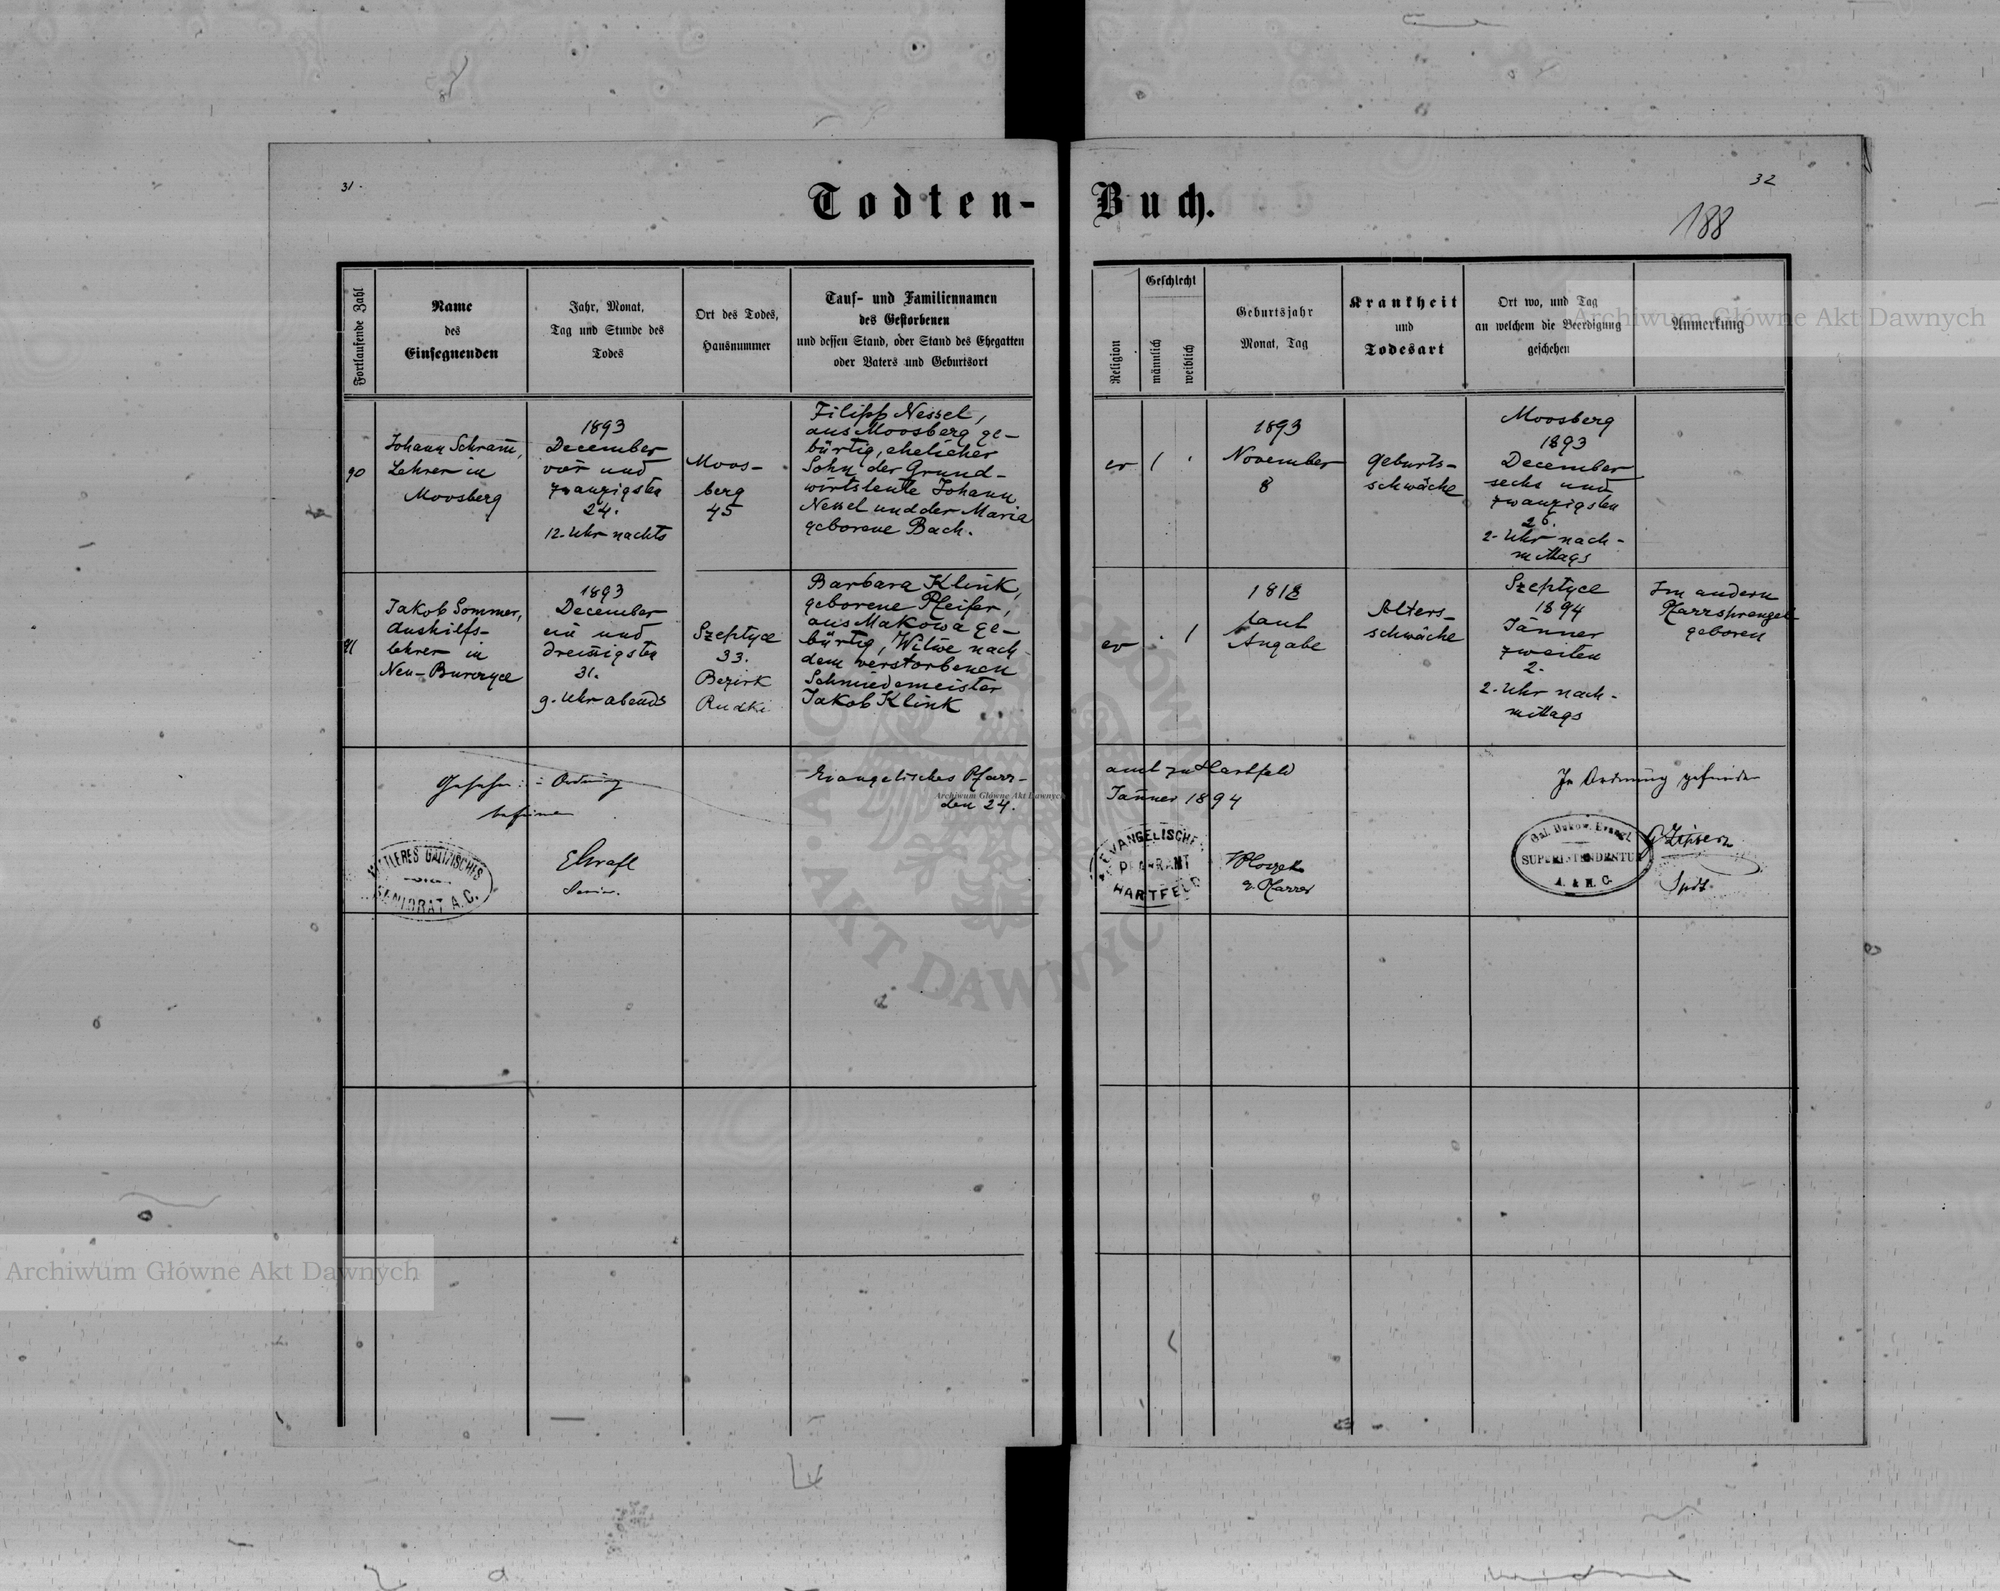 31.
32
188
Todten-Buch.
Fortlaufende Zahl
Name
des
Einsegnenden
Jahr, Monat,
Tag und Stunde des
Todes
Ort des Todes,
Hausnummer
Tauf- und Familiennamen
des Gestorbenen
und dessen Stand, oder Stand des Ehegatten
oder Vaters und Geburtsort
Religion
Geschlecht
männlich
weiblich
Geburtsjahr
Monat, Tag
Krankheit
und
Todesart
Ort wo, und Tag
an welchem die Beerdigung
geschehen
Anmerkung
90
Johann Schram,
Lehrer in
Moosberg
1893
December
vier und
zwanzigsten
24.
12. Uhr nachts
Moos-
berg
45
Filipp Nessel,
aus Moosberg ge-
bürtig, ehelicher
Sohn der Grund-
wirtsleute Johann
Nessel und der Maria
geborene Bach.
ev
1893
November
8
Geburts-
schwäche
Moosberg
1893
December
sechs und
zwanzigsten
26.
2. Uhr nach-
mittags
91
Jakob Sommer,
Aushilfs-
lehrer in
Neu-Burczyce
1893
December
ein und
dreissigsten
31.
9. Uhr abends
Szeptyce
33.
Bezirk
Rudki
Barbara Klink,
geborene Pfeifer,
aus Makowa ge-
bürtig, Witwe nach
dem verstorbenen
Schmiedemeister
Jakob Klink
ev
1818
laut
Angabe
Alters-
schwäche
Szeptyce
1894
Jänner
zweiten
2.
2. Uhr nach-
mittags
Im andern
Pfarrsprengel
geboren
Ordnung
befunden
Evangelisches Pfarr-
amt zu Hartfeld
den 24.
Jänner 1894
In Ordnung gefunden
MITTLERES GALIZISCHES
SENIORAT A.C.
Senior.
EVANGELISCHES
PFARRAMT
HARTFELD
Pfarrer
Gal. Bukow. Evangl.
SUPERINTENDENTUR
A. & H. C.
Supdt.
Archiwum Główne Akt Dawnych
Archiwum Główne Akt Dawnych
Archiwum Główne Akt Dawnych